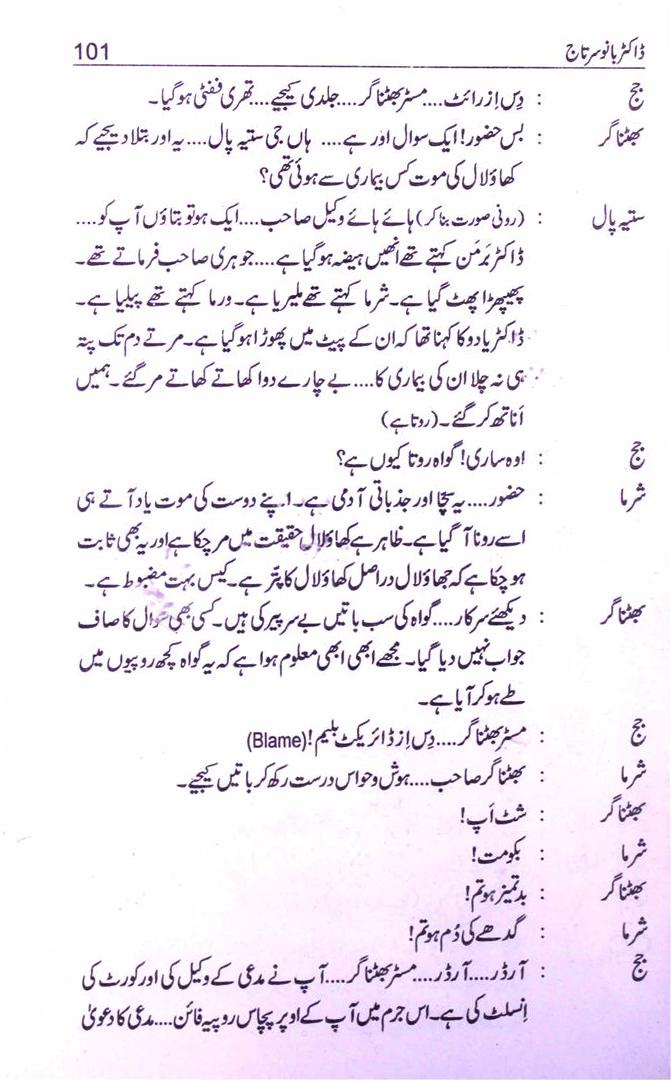 ڈاکٹر بانو سرتاج 101
جج : دِس اِز رائٹ.... مسٹر بھٹناگر.... جلدی کیجیے.... تھری ففٹی ہوگیا۔
بھٹناگر : بس حضور! ایک سوال اور ہے.... ہاں جی ستیہ پال.... یہ اور بتلا دیجیے کہ
کھاؤلال کی موت کس بیماری سے ہوئی تھی؟
ستیہ پال : (رونی صورت بنا کر) ہائے ہائے وکیل صاحب.... ایک ہو تو بتاؤں آپ کو....
ڈاکٹر بَرمَن کہتے تھے اُنھیں ہیضہ ہوگیا ہے.... جوہری صاحب فرماتے تھے۔
پھیپھڑا پھٹ گیا ہے۔ شرما کہتے تھے ملیریا ہے۔ ورما کہتے تھے پیلیا ہے۔
ڈاکٹر یادو کا کہنا تھا کہ ان کے پیٹ میں پھوڑا ہوگیا ہے۔ مرتے دم تک پتہ
ہی نہ چلا ان کی بیماری کا.... بے چارے دوا کھاتے کھاتے مر گئے۔ ہمیں
اَناتھ کر گئے۔ (روتا ہے)
جج : اوہ ساری! گواہ روتا کیوں ہے؟
شرما : حضور.... یہ سچا اور جذباتی آدمی ہے۔ اپنے دوست کی موت یاد آتے ہی
اسے رونا آ گیا ہے۔ ظاہر ہے کھاؤلال حقیقت میں مر چکا ہے اور یہ بھی ثابت
ہو چکا ہے کہ جھاؤلال دراصل کھاؤلال کا پتّر ہے۔ کیس بہت مضبوط ہے۔
بھٹناگر : دیکھئے سرکار.... گواہ کی سب باتیں بے سر پیر کی ہیں۔ کسی بھی سوال کا صاف
جواب نہیں دیا گیا۔ مجھے ابھی ابھی معلوم ہوا ہے کہ یہ گواہ کچھ روپیوں میں
طے ہو کر آیا ہے۔
جج : مسٹر بھٹناگر.... دِس اِز ڈائریکٹ بلیم! (Blame)
شرما : بھٹناگر صاحب.... ہوش و حواس درست رکھ کر باتیں کیجیے۔
بھٹناگر : شٹ اَپ!
شرما : بکو مت!
بھٹناگر : بدتمیز ہو تم!
شرما : گدھے کی دُم ہو تم!
جج : آرڈر.... آرڈر.... مسٹر بھٹناگر.... آپ نے مدعی کے وکیل کی اور کورٹ کی
اِنسلٹ کی ہے۔ اس جرم میں آپ کے اوپر پچاس روپیہ فائن.... مدعی کا دعویٰ